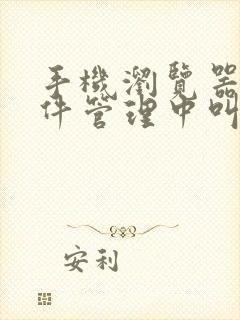 手機瀏覽器
件管理中叫
安利